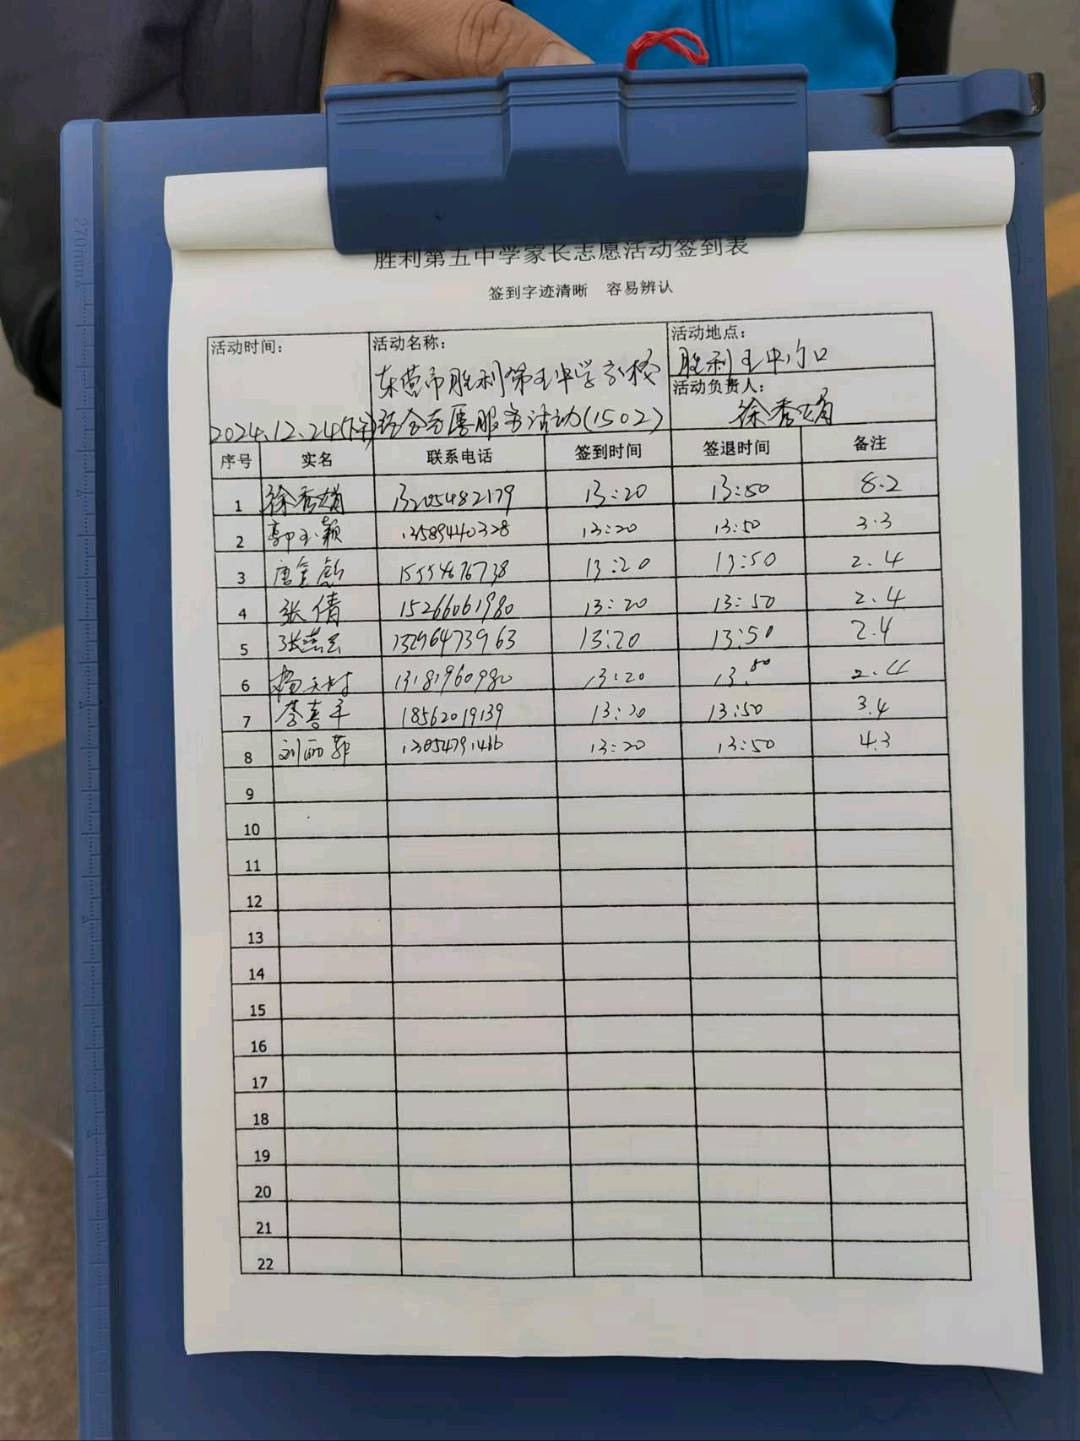 胜利第五中学家长志愿活动签到表
签到字迹清晰 容易辨认
活动时间： 活动名称： 活动地点：
东营市胜利第五中学 胜利五中门口
活动负责人：
2024.12.24(下午) 服务活动(1502) 徐秀娟
序号 实名 联系电话 签到时间 签退时间 备注
1 徐秀娟 13205482179 13:20 13:50 8.2
2 郭玉颖 13589440328 13:20 13:50 3.3
3 唐 15554676738 13:20 13:50 2.4
4 张倩 15266061980 13:20 13:50 2.4
5 张 13296473963 13:20 13:50 2.4
6 杨 13181960980 13:20 13:50 2.4
7 李喜平 18562019139 13:20 13:50 3.4
8 刘丽菲 13:20 13:50 4.3
9
10
11
12
13
14
15
16
17
18
19
20
21
22
270mm